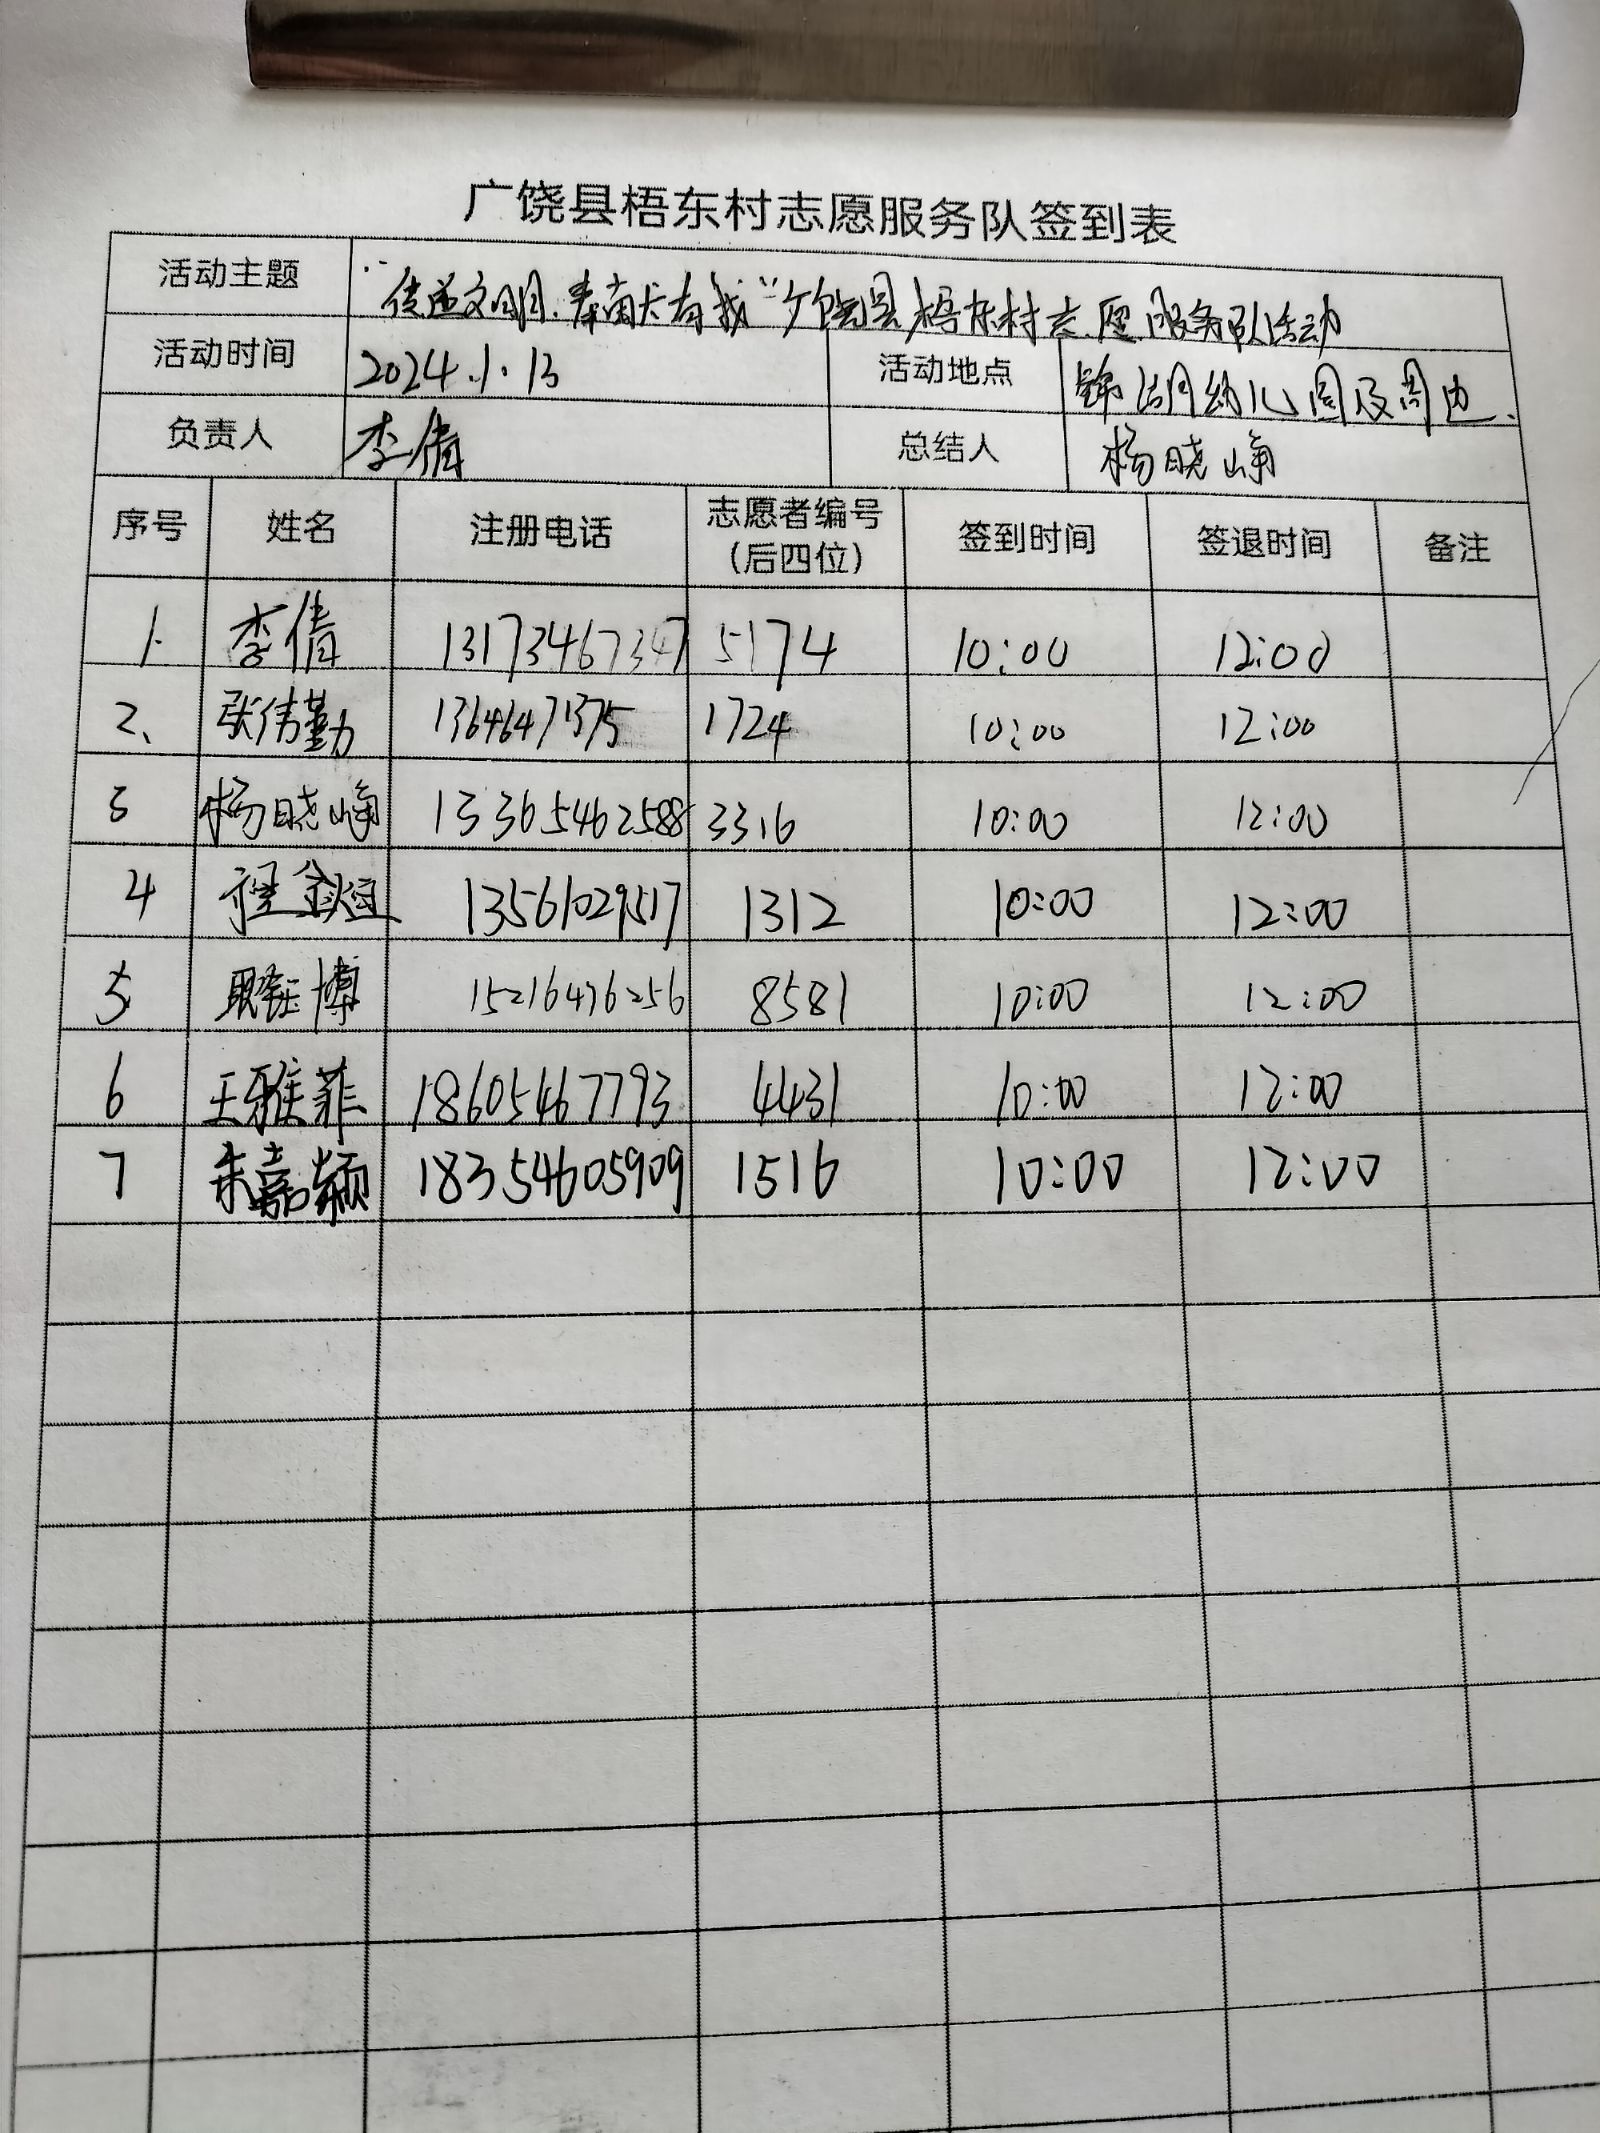 广饶县梧东村志愿服务队签到表
活动主题 “传递文明.奉献有我”广饶县梧东村志愿服务队活动
活动时间 2024.1.13 活动地点 锦湖幼儿园及周边.
负责人 李倩 总结人 杨晓峰
序号 姓名 注册电话 志愿者编号 签到时间 签退时间 备注
(后四位)
1. 李倩 13173467347 5174 10:00 12:00
2、 张伟勤 13646471375 1724 10:00 12:00
3 杨晓峰 13365462588 3316 10:00 12:00
4 程 13561029517 1312 10:00 12:00
5 耿钰博 15216476256 8581 10:00 12:00
6 王雅菲 18605467793 4431 10:00 12:00
7 朱嘉颖 18354605909 1516 10:00 12:00